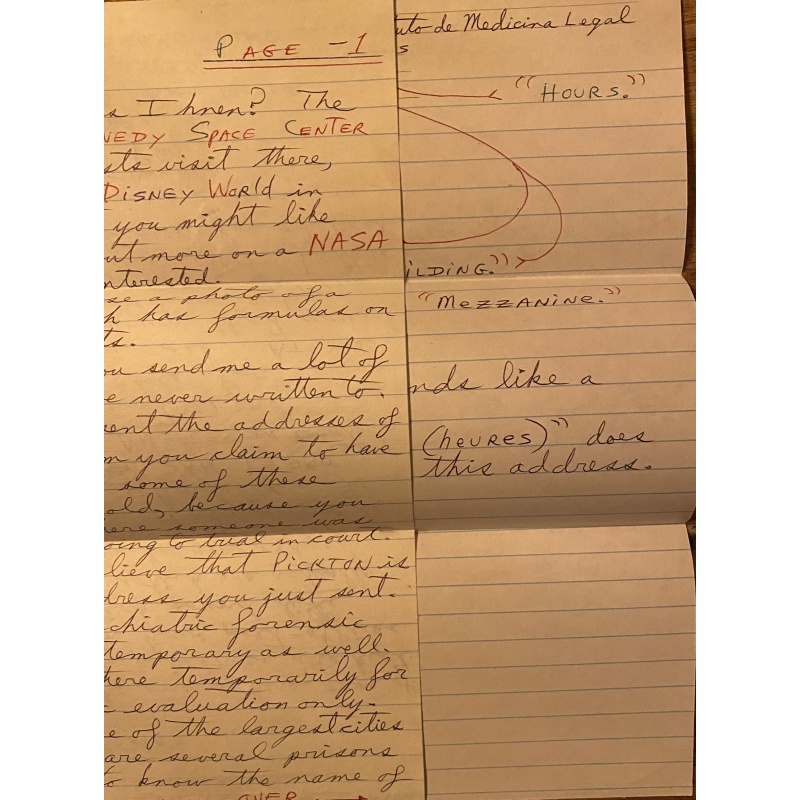 PAGE -1
s I hnen? The
NEDY SPACE CENTER
sts visit there,
DISNEY WORld in
you might like
ut more on a NASA
nterested.
se a photo of a
h has formulas on
ts.
ou send me a lot of
e never written to.
ent the addresses of
m you claim to have
some of these
old, because you
here someone was
oing to trial in court.
lieve that PICKTON is
dress you just sent.
chiatric forensic
temporary as well.
here temporarily for
evaluation only.
e of the largest cities
are several prisons
to know the name of
OVER
uto de Medicina Legal
s
"HOURS."
iLDING."
"MEZZANINE."
nds like a
(heURES)" does
this address.